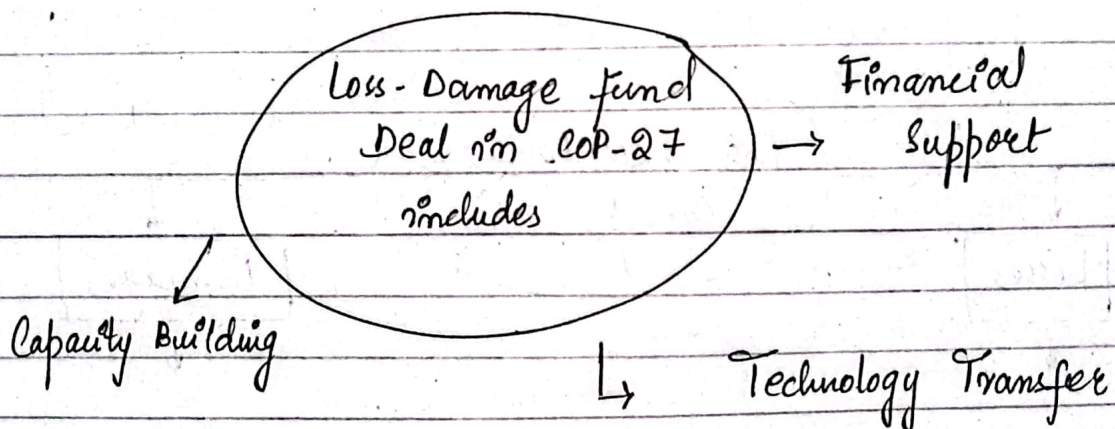 Loss-Damage fund
Deal in COP-27
includes
→ Financial
Support
Capacity Building
Technology Transfer